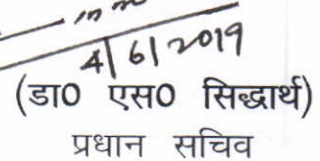 4/6/2019
(डा0 एस0 सिद्धार्थ)
प्रधान सचिव